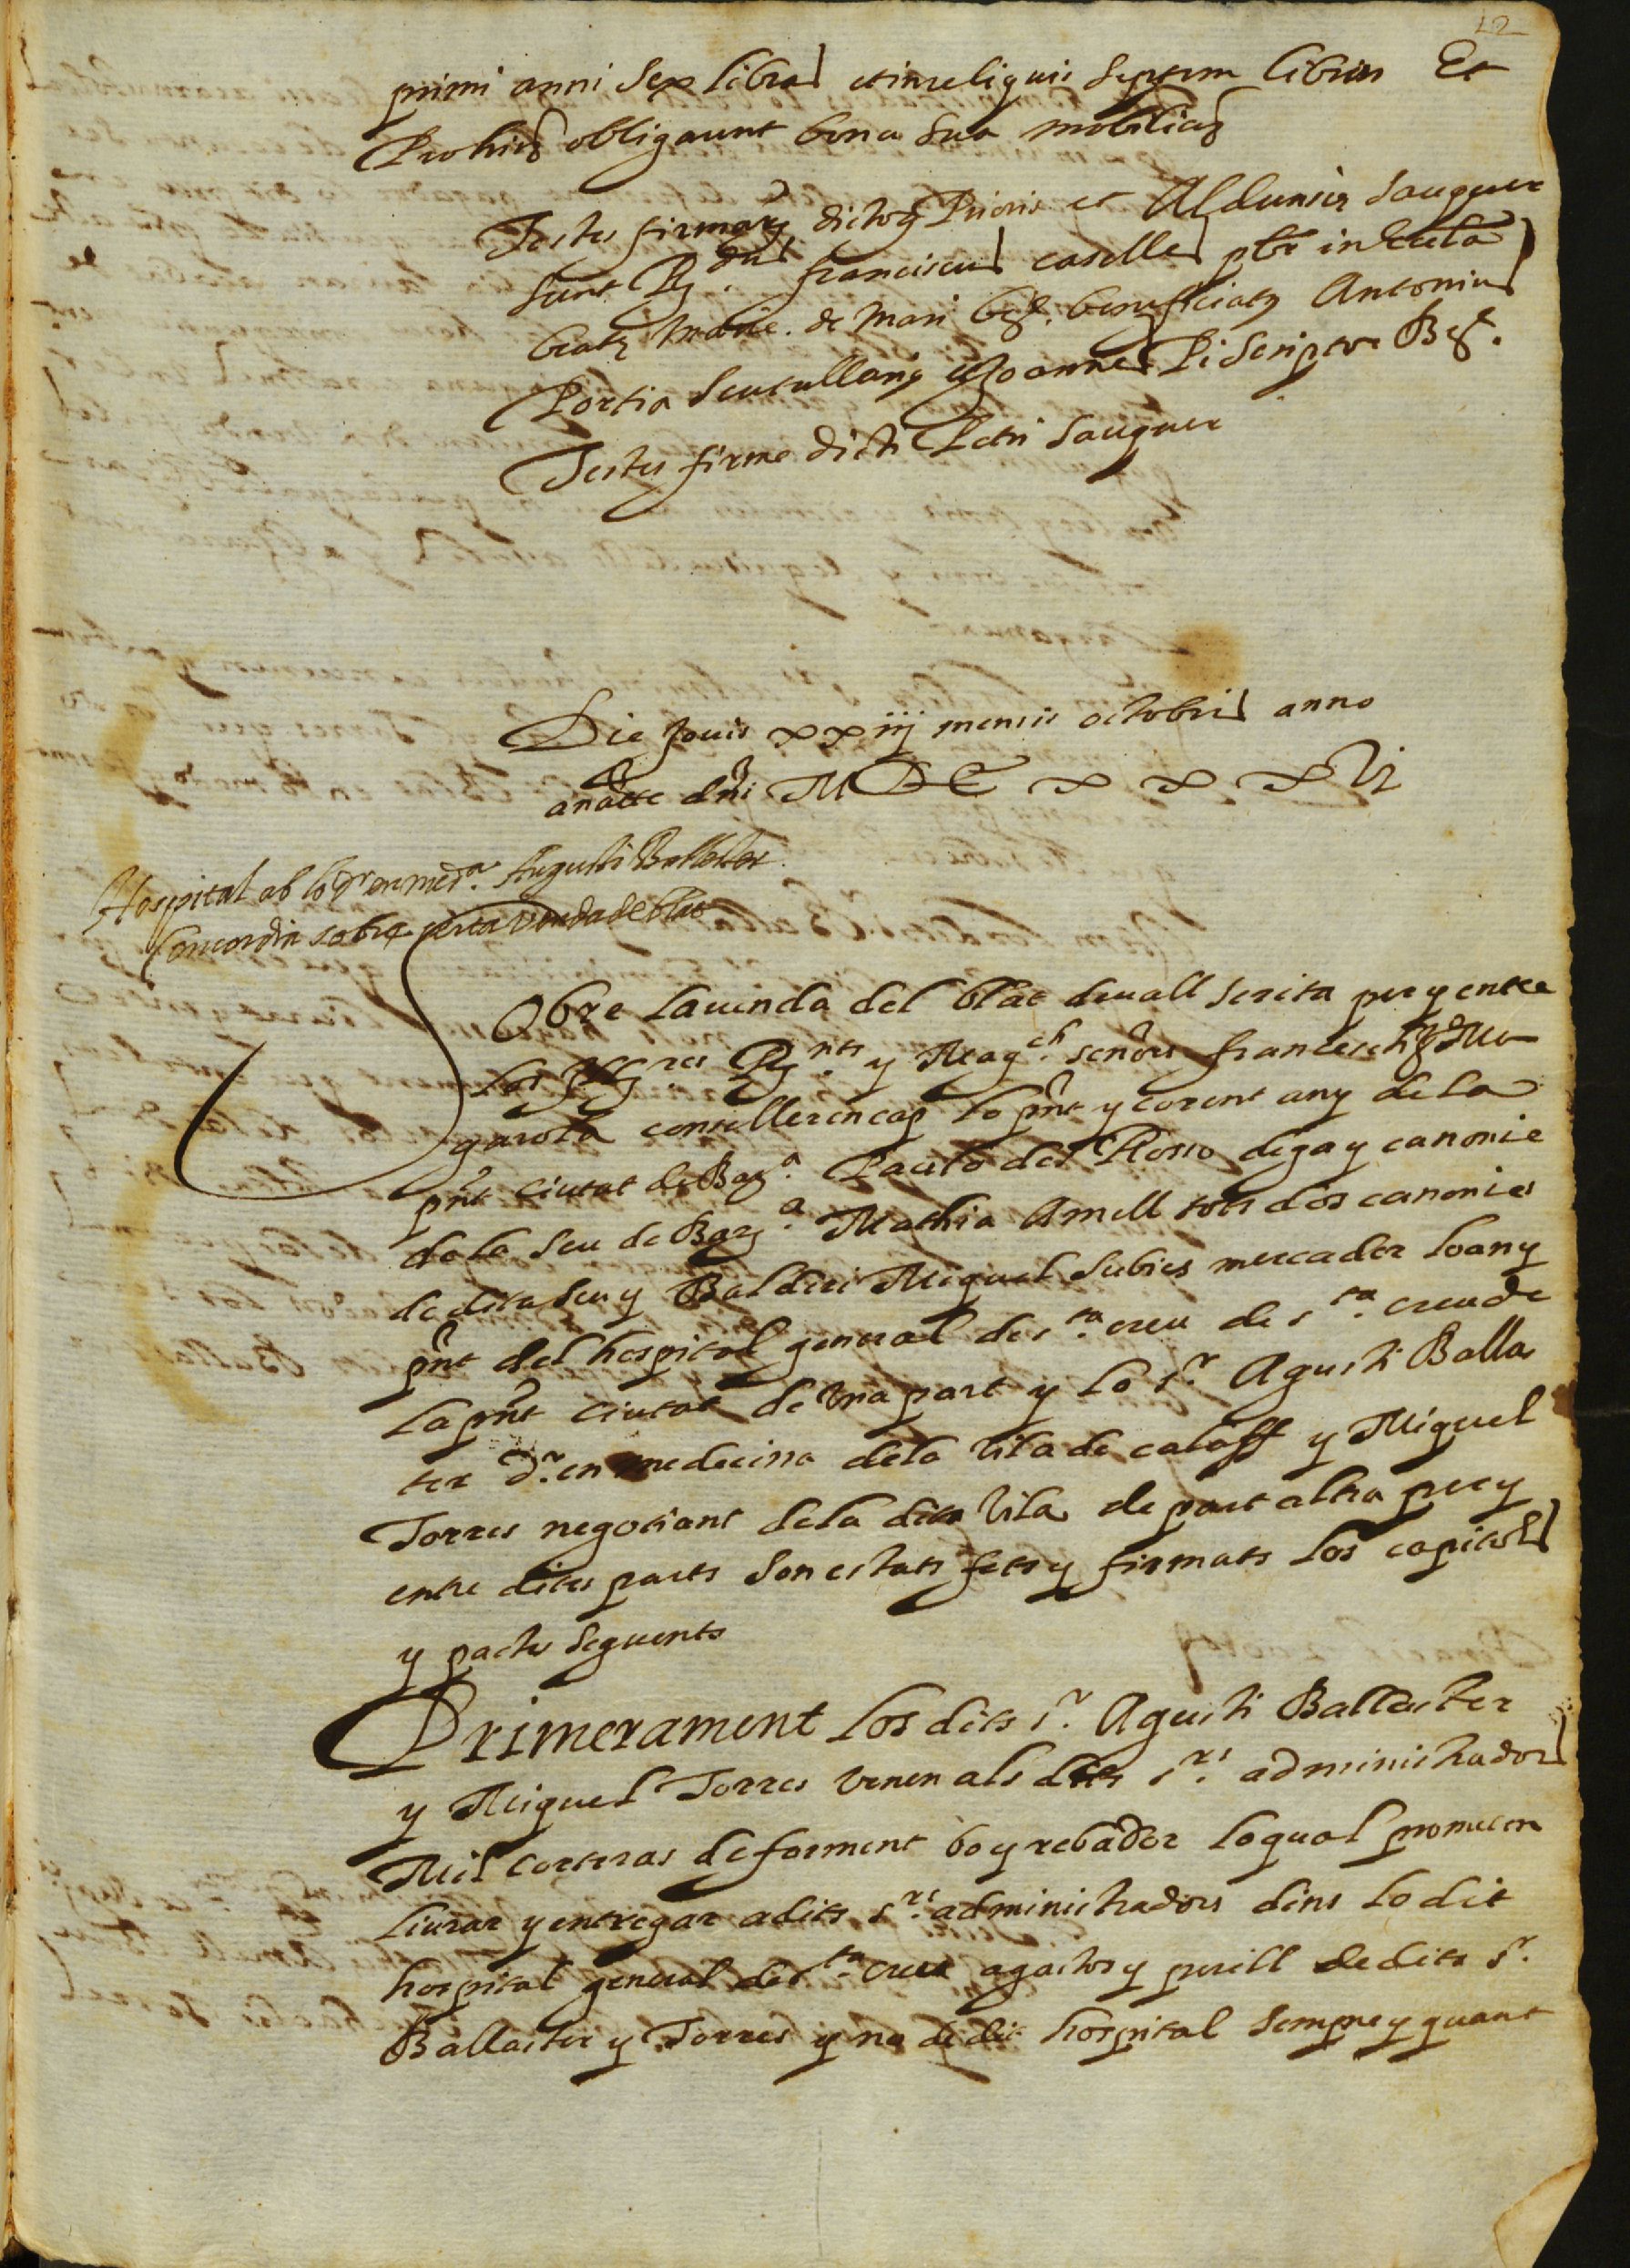 12
primi anni sex libras et in reliquis septem libras Et
Pro his obligarunt bona sua mobilia
Testes firmarum dictorum Prioris et Aldunsia Sauguer
sunt Rdus franciscus casselles pbr in Eccla
beatæ Mariæ de Mari Bar. beneficiatus Antonius
Portia scutullarius et Joannes Pi scriptor Bar.
Testes firme dicti Petri Sauguer
Die Jouis xxiij mensis octobris anno
a natte dni MDC x x x Vj
Hospital ab lo Dr en medª. Augusti Ballester
Concordia sobre certa venda de blat
Sobre la uenda del blat deuall scrita per y entre
los Illres Rnts y Magchs señors francesch
garola conseller en cap lo pnt y corent any de la
pnt ciutat de Barª. Paulo del Rosso dega y canonie
de la Seu de Barª. Mathia Amell tots dos canonies
de dita Seu y Baldiri Miquel Subies mercador lo any
pnt del hospital general de sta. creu de sta. creu de
la pnt ciutat de vna part y lo sr. Agusti Balla
ter Dr. en medecina de la vila de calaff y Miquel
Torres negotiant de la dita vila de part altra per y
entre dites parts son estats fets y firmats los capitols
y pactes seguents
Primerament los dits sr. Agusti Ballaster
y Miquel Torres venen als dits srs. administradors
Mil corteras de forment bo y rebador lo qual prometen
liurar y entregar a dits srs. administradors dins lo dit
hospital general de sta. creu a gastos y perill de dits sr.
Ballaster y Torres y no de dit hospital sempre y quant